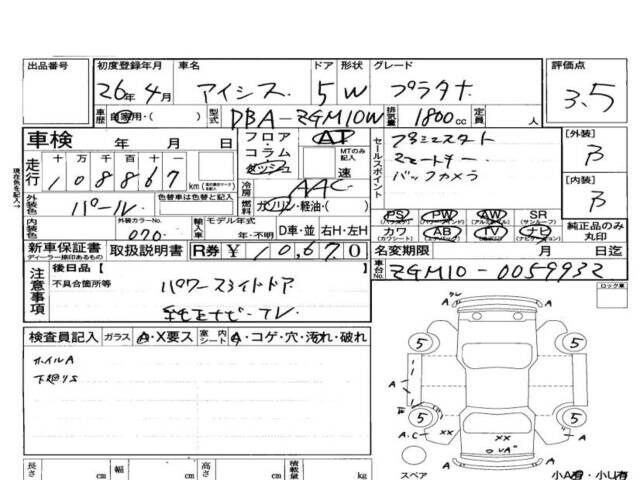 出品番号 初度登録年月 車名 ドア 形状 グレード 評価点
26年 4月 アイシス 5 W プラタナ 3.5
車歴 自家用・( ) 型式 DBA-ZGM10W 排気量 1800cc 定員 人
車検 年 月 日 フロア・コラム・ダッシュ AT セールスポイント プッシュスタート [外装]
走行 十 万 千 百 十 一 MTのみ記入 スマートキー B
108867 km 速 バックカメラ [内装]
冷房 AAC B
外装色 パール 色替車は色替と記入 燃料 ガソリン・軽油・( ) PS PW AW SR
内装色 外装カラーNo. 070 輸入車 モデル年式 年・不明 D車・並 右H・左H カワ AB TV ナビ 純正品のみ丸印
新車保証書 取扱説明書 R券 ¥10,670 名変期限 月 日迄
ディーラー捺印あるもの
注意事項 後日品【 】 車台No. ZGM10-0059932
不具合箇所等 パワースライドドア ロック車
純正ナビ-TV
現在色を記入→
検査員記入 ガラス A・X要ス 室内シート A・コゲ・穴・汚れ・破れ
ホイルA
下廻りS
5 5
A A
5 5
A.C XX XX A
UA
長さ cm 幅 cm 高さ cm 積載量 kg スペア 小A有・小U有